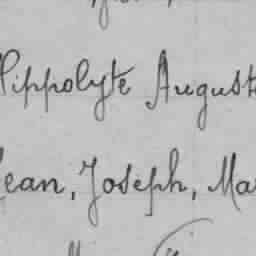 Hippolyte August
Jean, Joseph, Ma